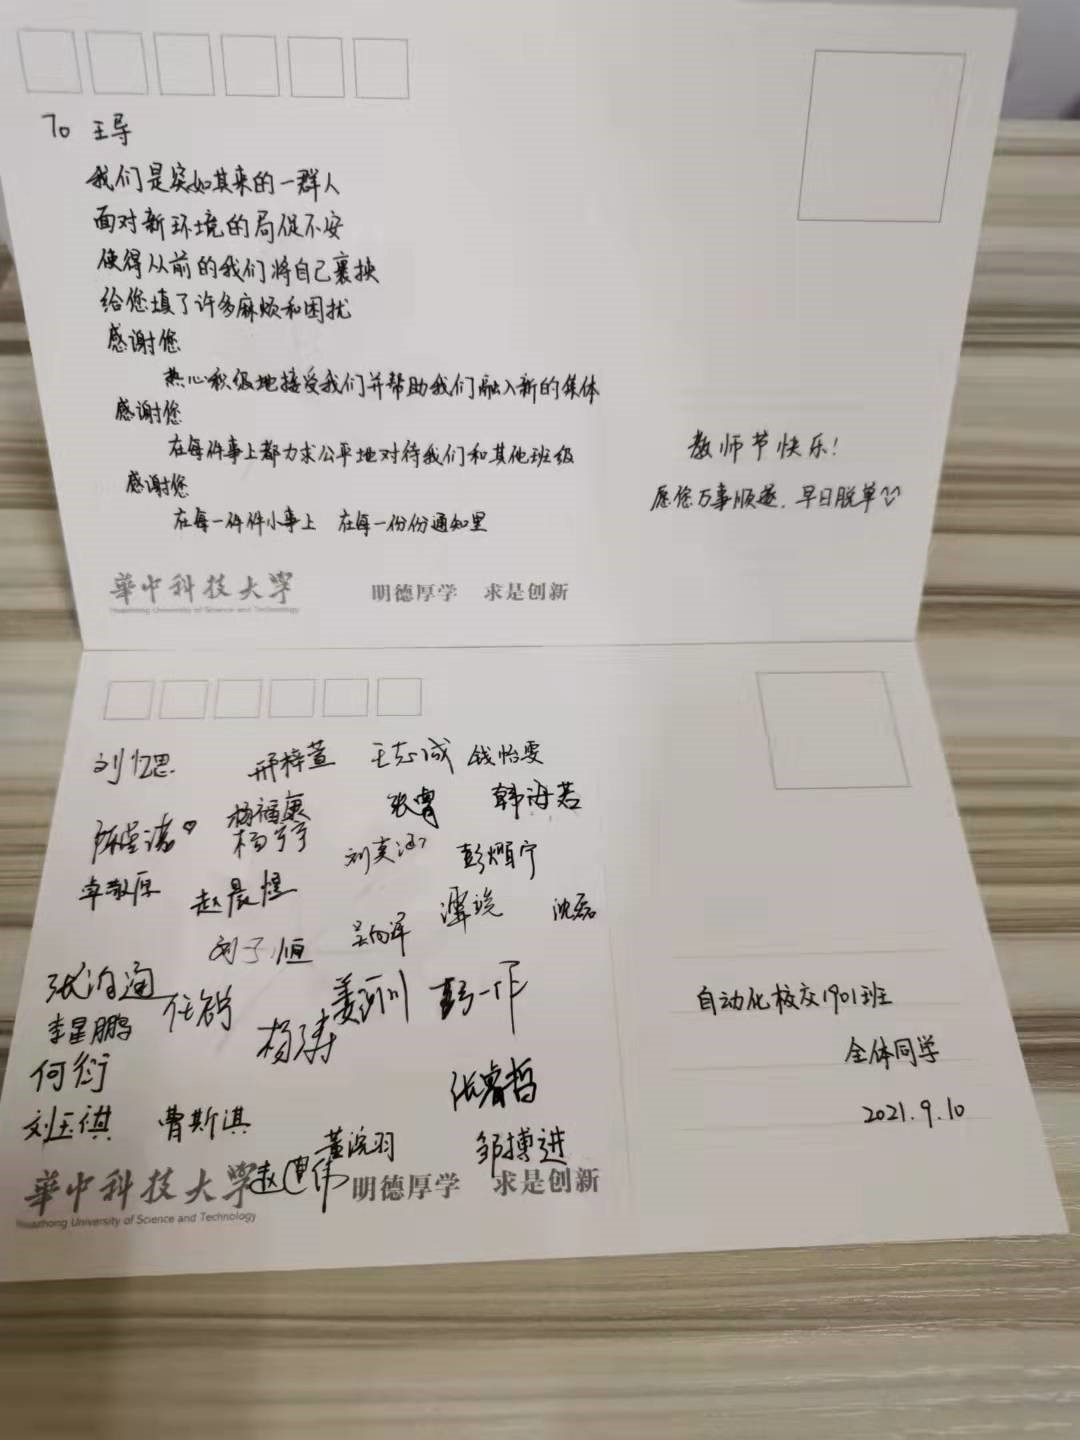 To 王导
我们是突如其来的一群人
面对新环境的局促不安
使得从前的我们将自己裹挟
给您填了许多麻烦和困扰
感谢您
热心积极地接受我们并帮助我们融入新的集体
感谢您
在每件事上都力求公平地对待我们和其他班级
感谢您
在每一件件小事上 在每一份份通知里
教师节快乐!
愿您万事顺遂,早日脱单
華中科技大学
Huazhong University of Science and Technology
明德厚学 求是创新
刘忆思 邢梓萱 王志诚 钱怡雯
杨福康 张霄 韩海若
杨宁宁 刘奕涵 彭熠宁
卓敬原 赵晨煜 谭锐 沈磊
刘子恒 吴向军
张洵通 任韵 姜珂川 彭一作
李星鹏 杨涛
何衍 张睿哲
刘玉祺 曹斯淇 董浣羽 邹搏进
自动化校交1901班
全体同学
2021.9.10
華中科技大学
Huazhong University of Science and Technology
明德厚学 求是创新